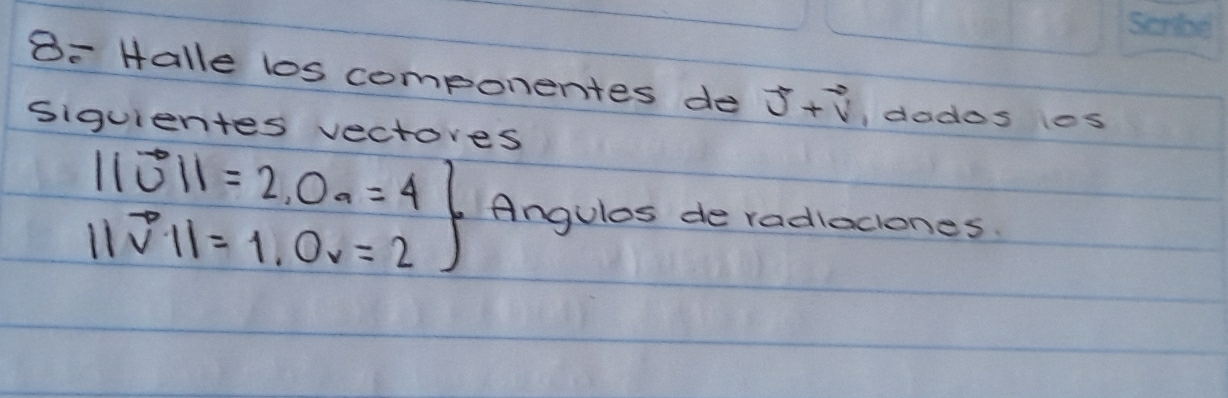 Scribe
8.- Halle los componentes de U⃗ + V⃗, dados los
siguientes vectores
||U⃗|| = 2, Oa = 4
||V⃗|| = 1, Ov = 2 } Angulos de radiaciones.